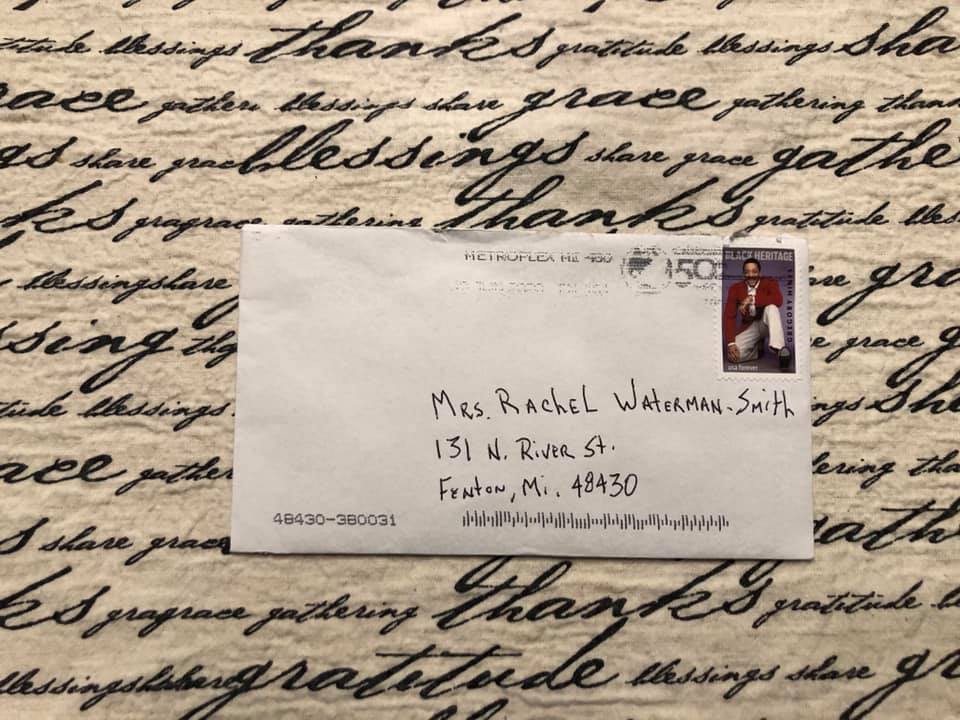 titude blessings thanks gratitude blessings sha
race gatheri blessings share grace gathering thank
gs share gracblessings share grace gathe
ks gragrace gathering thanks gratitude bles
METROPLEX MI 480
50
BLACK HERITAGE
GREGORY HINES
usa forever
blessingshare
re gra
sing
e grace g
Mrs. Rachel Waterman-Smith
titude blessings
ngs sha
131 N. River St.
Fenton, Mi. 48430
ace gather
ering tha
48430-380031
s share grace
ath
ks gragrace gathering thanks gratitude b
blessingshharegratitude blessings share gr